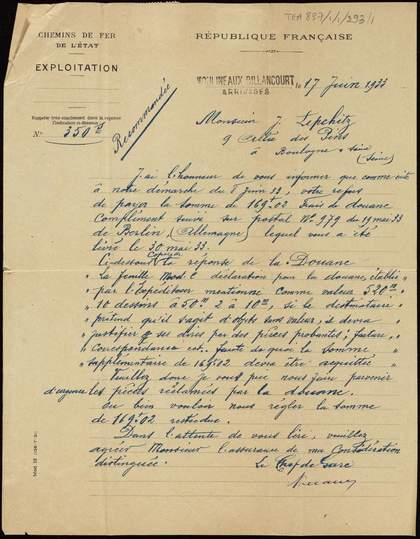 TGA 897/1/1/293/1
CHEMINS DE FER
DE L'ÉTAT
EXPLOITATION
RÉPUBLIQUE FRANÇAISE
MOULINEAUX BILLANCOURT
ARRIVAGES
le 17 Juin 1933
Rappeler très exactement dans la réponse
l'indication ci-dessous :
N° 350
Recommandée
Monsieur J. Lipchitz
9 Allée des Pins
à Boulogne s/ Seine
(Seine)
J'ai l'honneur de vous informer que comme suite
à notre démarche du 8 Juin 33, votre refus
de payer la somme de 169.02 frais de douane
Compliment suivi sur postal N° 979 du 19 mai 33
de Berlin (Allemagne) lequel vous a été
livré le 30 mai 33.
Ci-dessous Copie de réponse de la Douane
" la feuille Mod. C déclaration pour la douane, établie
" par l'Expéditeur mentionne comme valeur
" 10 dessins à 50 2 à 10, si le destinataire
" prétend qu'il s'agit d'objets sans valeur, il devra
" justifier de ses dires par des pièces probantes ; facture,
" Correspondance ect. faute de quoi la somme
" supplémentaire de 169.02 devra être acquittée
Veuillez donc je vous prie nous faire parvenir
d'urgence les pièces réclamées par la douane.
ou bien vouloir nous régler la somme
de 169.02 restée due.
Dans l'attente de vous lire, veuillez
agréer Monsieur l'assurance de ma Considération
distinguée.
Le Chef de gare